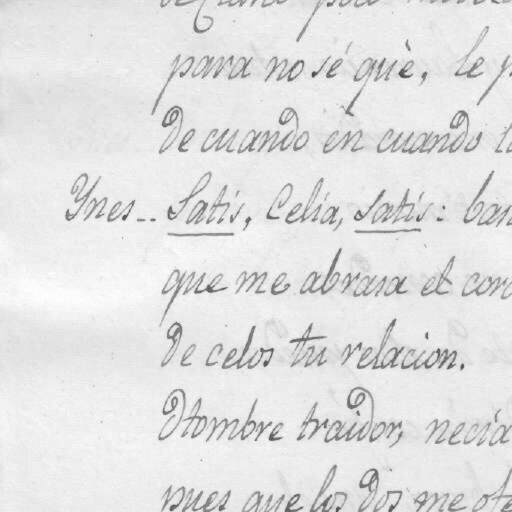 para no sé què, le
de cuando en cuando
Ynes.. Satis, Celia, satis:
que me abrasa el
de celos tu relacion.
Hombre traidor, necia
pues que los dos me